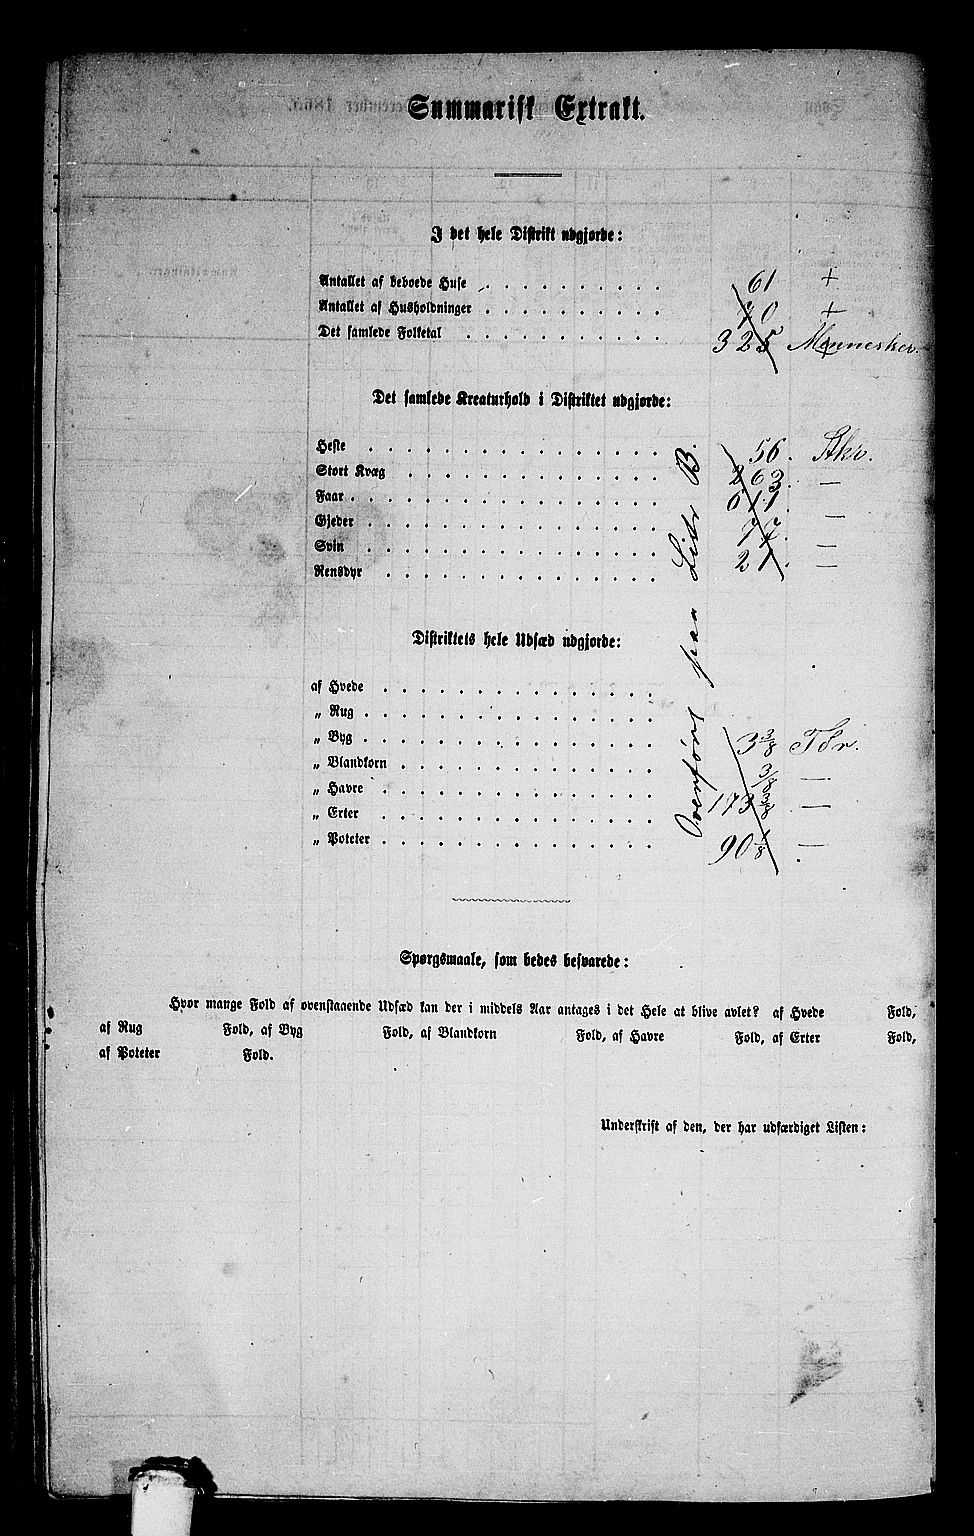 Summarisk Extrakt.
I det hele Distrikt udgjorde:
Antallet af beboede Huse . . . . . . . . . . 61 +
Antallet af Husholdninger . . . . . . . . . . 70 +
Det samlede Folketal . . . . . . . . . . 325 Mennesker.
Det samlede Kreaturhold i Distriktet udgjorde:
Heste . . . . . . . . . . 56. Stkr.
Stort Kvæg . . . . . . . . . . 263. —
Faar . . . . . . . . . . 611. —
Gjeder . . . . . . . . . . 77. —
Svin . . . . . . . . . . 21. —
Rensdyr . . . . . . . . . .
Overført paa Liste B.
Distriktets hele Udsæd udgjorde:
af Hvede . . . . . . . . . .
„ Rug . . . . . . . . . .
„ Byg . . . . . . . . . . 3 3/8 Tdr.
„ Blandkorn . . . . . . . . . . —
„ Havre . . . . . . . . . . 173 —
„ Erter . . . . . . . . . .
„ Poteter . . . . . . . . . . 90 1/8 —
Spørgsmaale, som bedes besvarede:
Hvor mange Fold af ovenstaaende Udsæd kan der i middels Aar antages i det Hele at blive avlet? af Hvede Fold,
af Rug Fold, af Byg Fold, af Blandkorn Fold, af Havre Fold, af Erter Fold,
af Poteter Fold.
Underskrift af den, der har udfærdiget Listen: